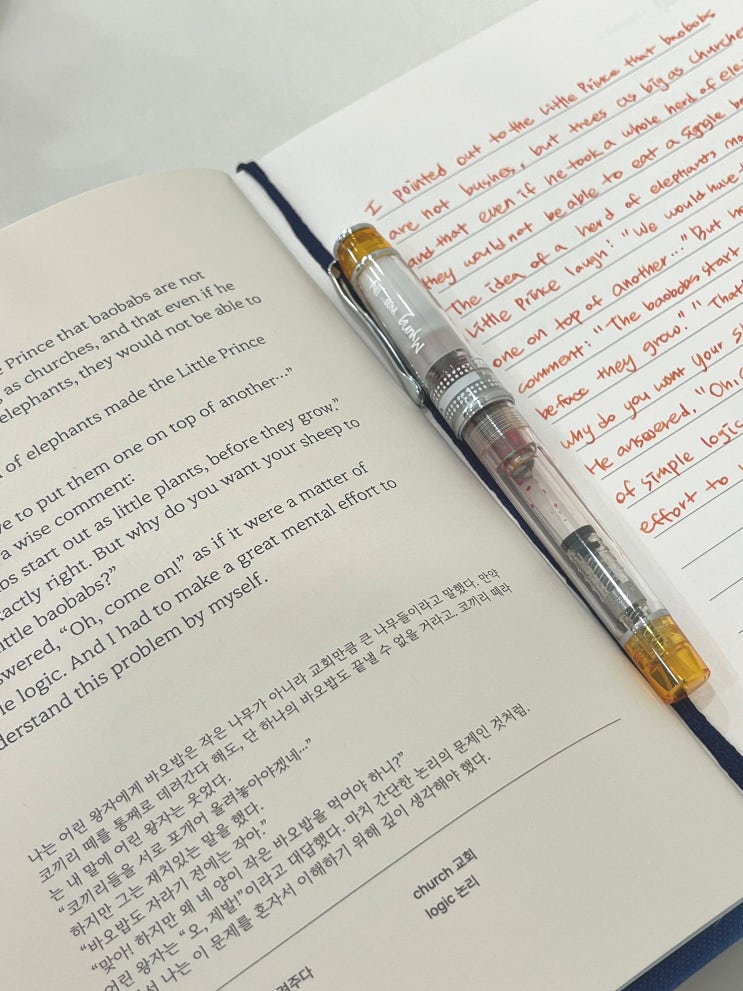 Prince that baobabs are not
as churches, and that even if he
elephants, they would not be able to
of elephants made the Little Prince
to put them one on top of another…”
a wise comment:
start out as little plants, before they grow.”
right. But why do you want your sheep to
little baobabs?”
“Oh, come on!” as if it were a matter of
logic. And I had to make a great mental effort to
this problem by myself.
나는 어린 왕자에게 바오밥은 작은 나무가 아니라 교회만큼 큰 나무들이라고 말했다. 만약
코끼리 떼를 통째로 데려간다 해도, 단 하나의 바오밥도 끝낼 수 없을 거라고. 코끼리 떼라
는 내 말에 어린 왕자는 웃었다.
“코끼리들을 서로 포개어 올려놓아야겠네…”
하지만 그는 재치있는 말을 했다.
“바오밥도 자라기 전에는 작아.”
“맞아! 하지만 왜 네 양이 작은 바오밥을 먹어야 하니?”
어린 왕자는 “오, 제발!”이라고 대답했다. 마치 간단한 논리의 문제인 것처럼.
나는 이 문제를 혼자서 이해하기 위해 깊이 생각해야 했다.
church 교회
logic 논리
I pointed out to the Little Prince that baobabs
are not bushes, but trees as big as churches
and that even if he took a whole herd of
they would not be able to eat a single
The idea of a herd of elephants
Little Prince laugh: "We would have
one on top of another..." But
comment: "The baobabs start
before they grow." "That's
why do you want your
He answered, "Oh,
of simple logic
effort to